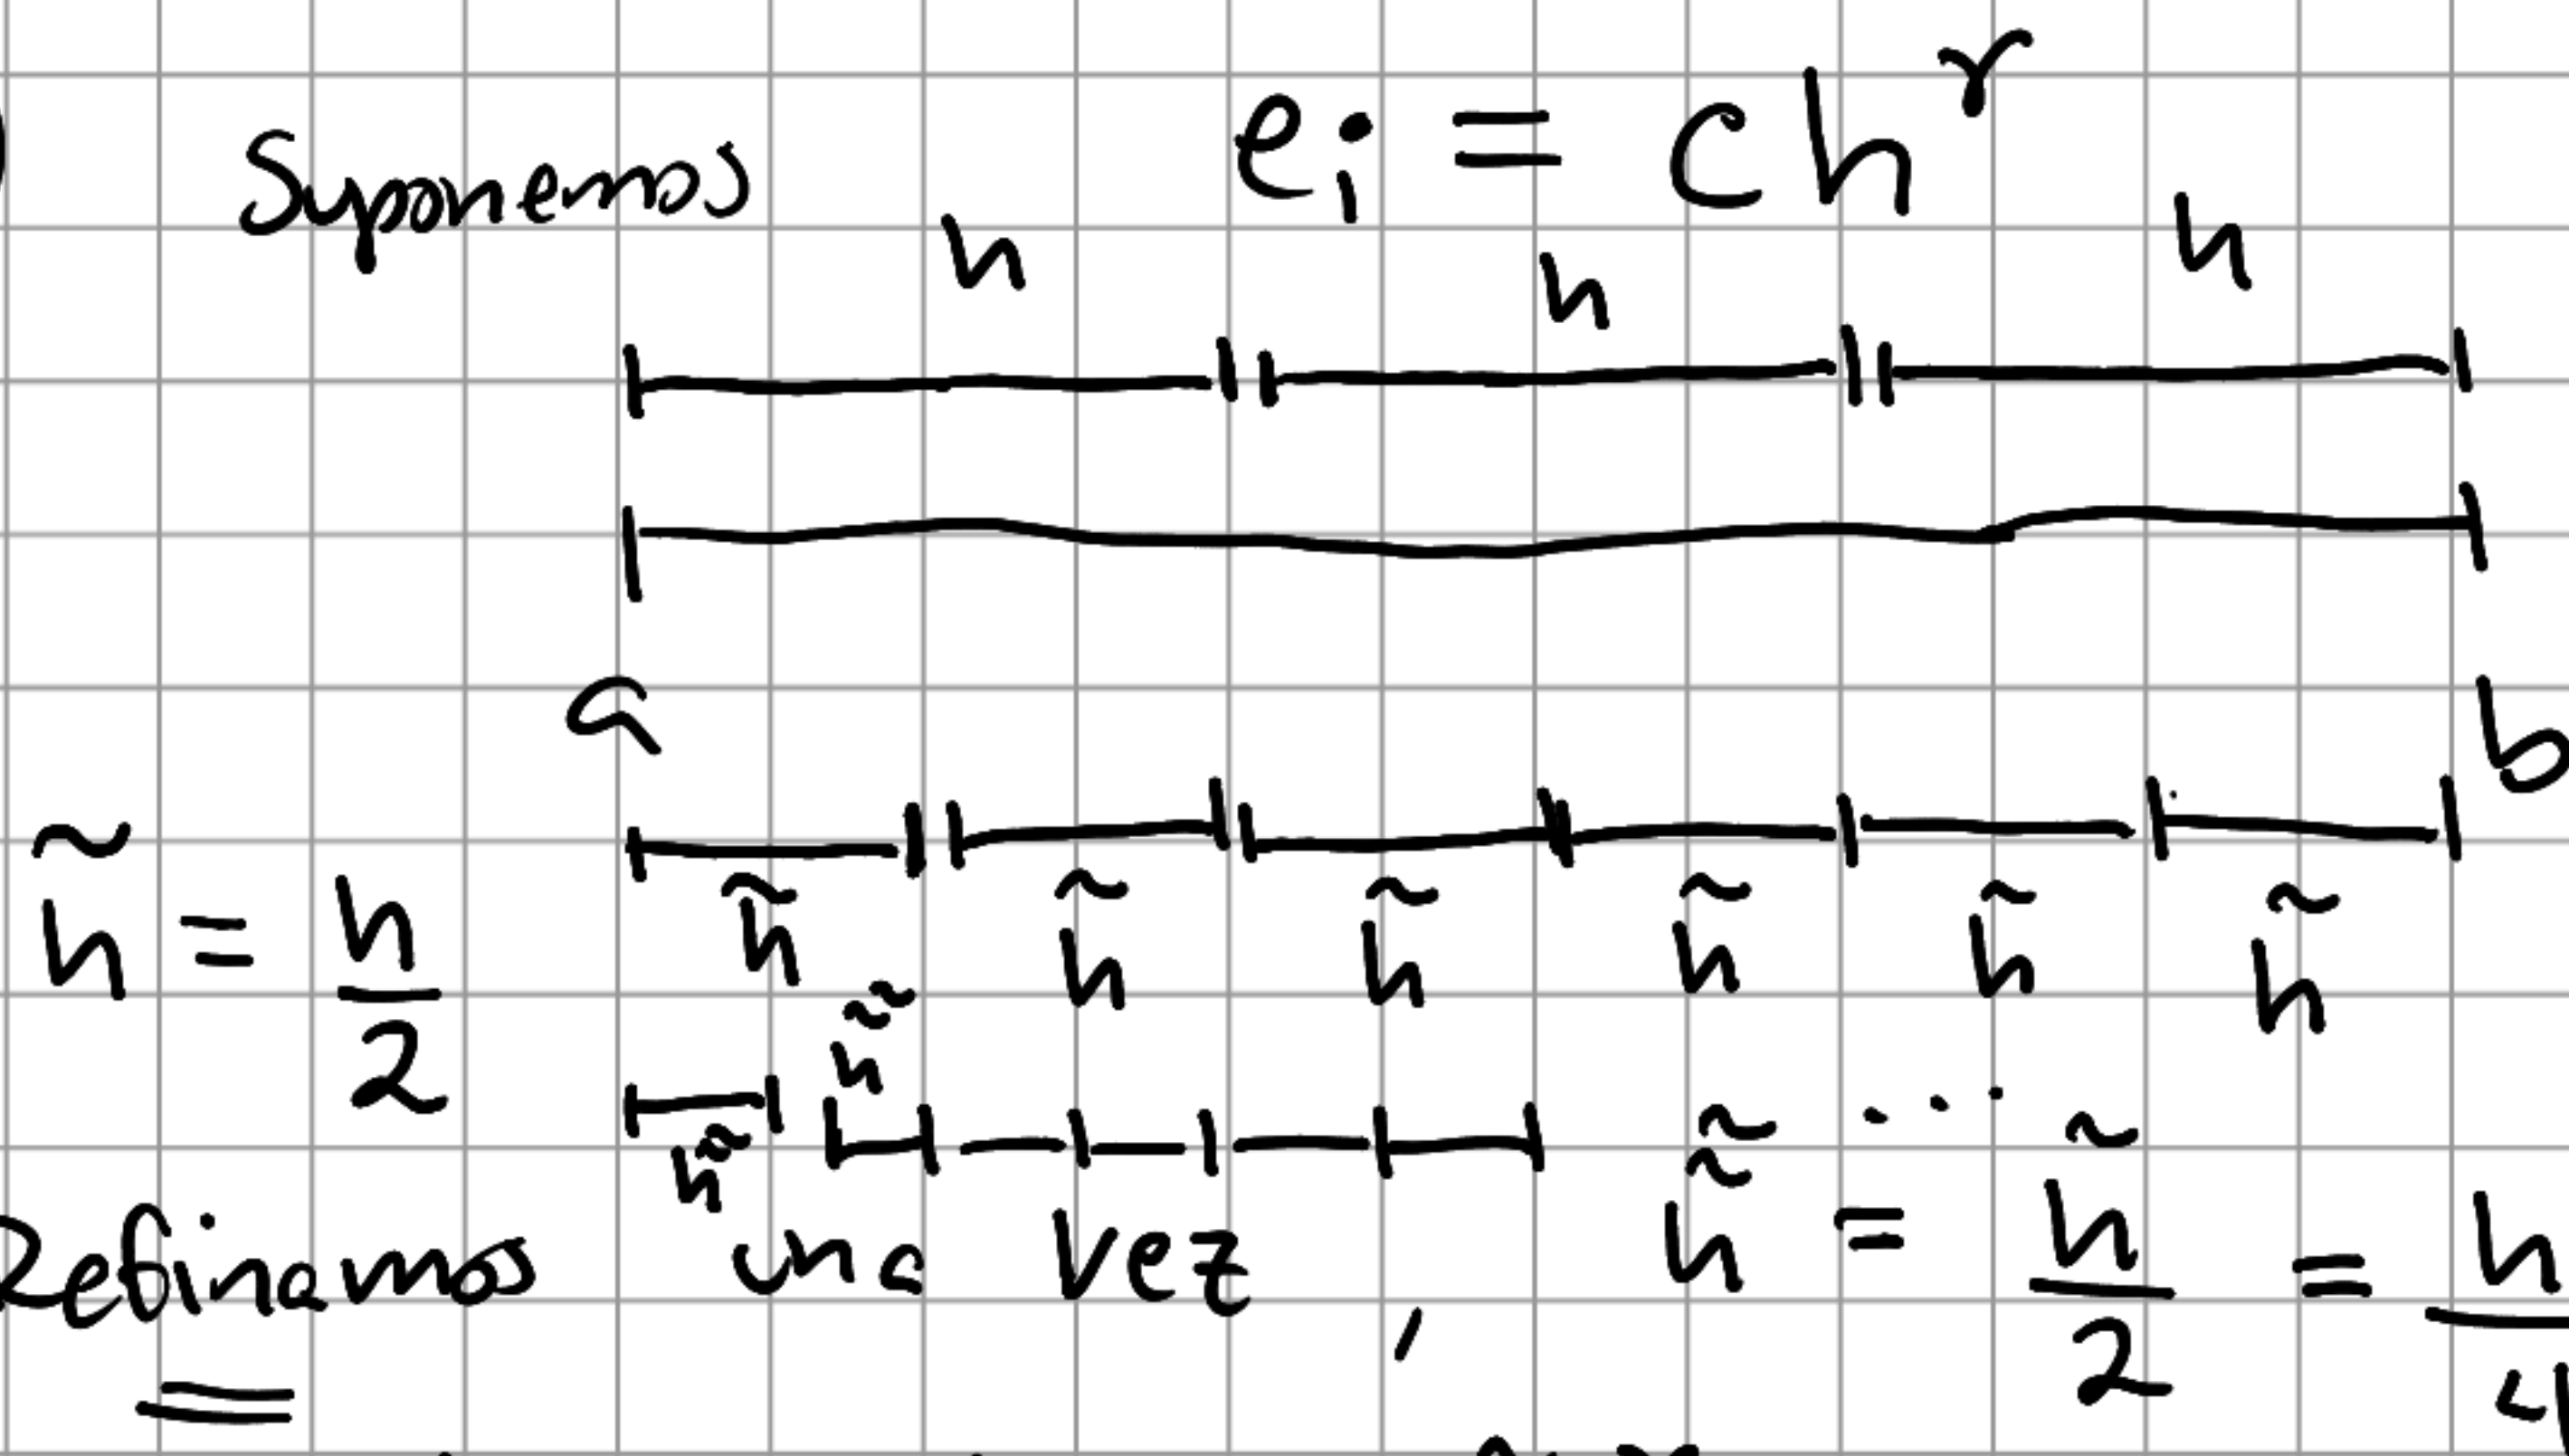 Suponemos eᵢ = ch^r
h h h
a b
h̃ = h/2 h̃ h̃ h̃ h̃ h̃ h̃
h̃̃ h̃̃ ...
Refinamos una vez, h̃̃ = h̃/2 = h/4